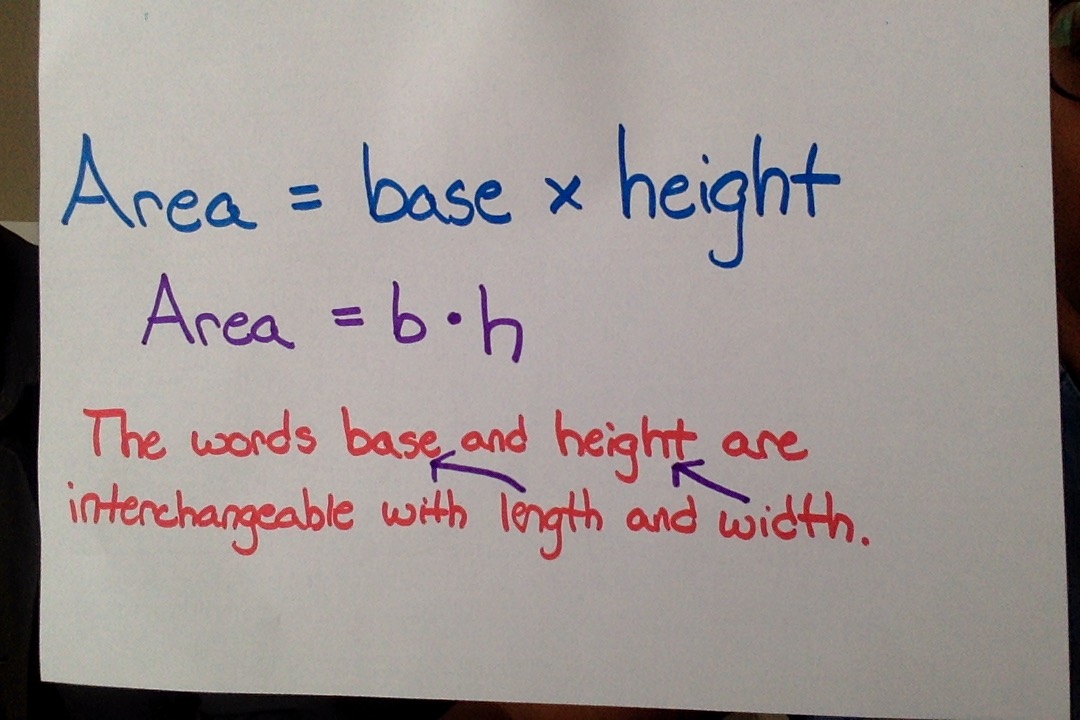 Area = base x height
Area = b·h
The words base and height are
interchangeable with length and width.